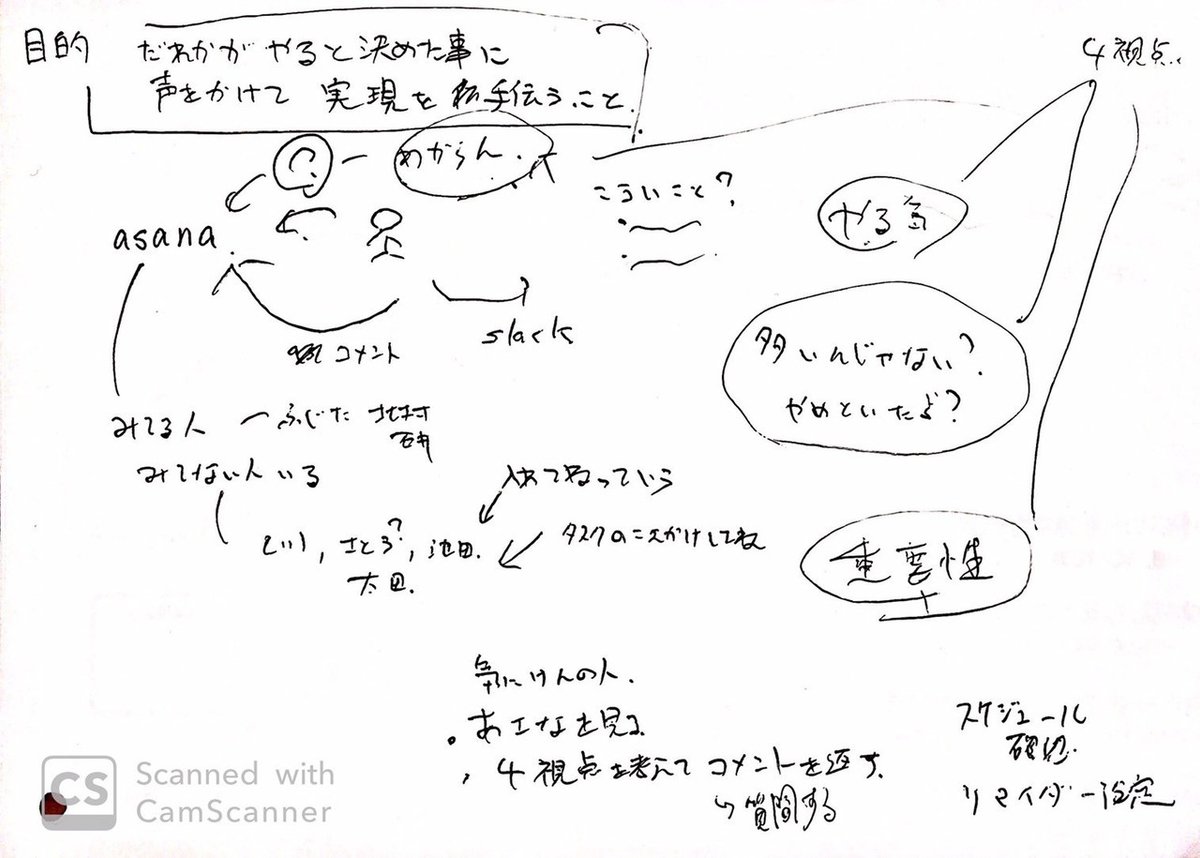 目的
だれかが やると決めた事に
声をかけて 実現を お手伝うこと.
4視点..
わからん.
こういこと?
やる気
asana.
コメント
slack
多いんじゃない?
やめといたら?
みてる人 ー ふじた 北村
石井
みてない人 いる
入れてねっていう
さとう?, 池田.
太田.
タスクのこえかけしてね
重要性
の人.
あさなを見る
4視点を考えて コメントを返す.
↳質問する
スケジュール
確認.
リマインダー設定
CS Scanned with
CamScanner